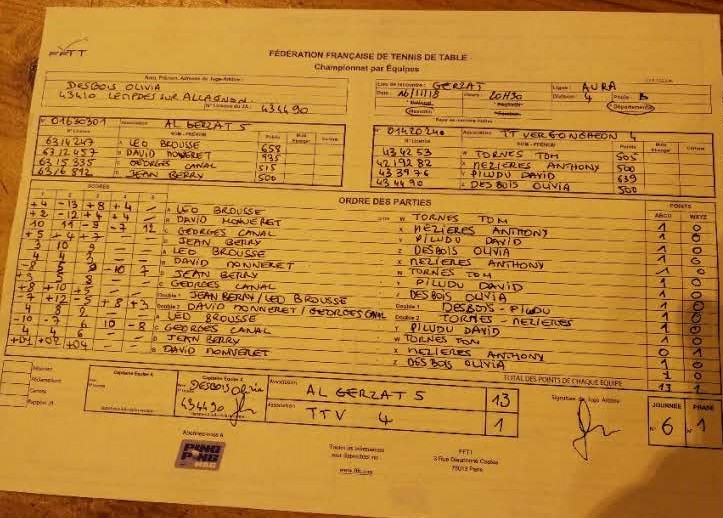 FFTT
FÉDÉRATION FRANÇAISE DE TENNIS DE TABLE
Championnat par Équipes
Nom, Prénom, Adresse du Juge-Arbitre :
DESBOIS OLIVIA
43410 LEMPDES SUR ALLAGNON
N° Licence du JA : 434490
Lieu de rencontre : GERZAT Ligue : AURA
Date : 16/11/18 Heure : 20H30 Division : 4 Poule B
Départementale
N° 01630301 Association AL GERZAT 5
N° Licence NOM - PRÉNOM Points
6314247 A LEO BROUSSE 658
6312457 B DAVID MONNERET 935
6315335 C GEORGES CANAL 515
6316892 D JEAN BERRY 500
N° 01420240 Association TT VERGONGHEON 4
N° Licence NOM - PRÉNOM Points
434253 W TORNES TOM 505
4219282 X MEZIERES ANTHONY 500
433976 Y PILUDU DAVID 639
434490 Z DESBOIS OLIVIA 500
SCORES ORDRE DES PARTIES POINTS
1 2 3 4 5 ABCD WXYZ
+4 -13 +8 +4 A LEO BROUSSE W TORNES TOM 1 0
+2 -12 +4 +4 B DAVID MONNERET X MEZIERES ANTHONY 1 0
10 11 -9 -7 12 C GEORGES CANAL Y PILUDU DAVID 1 0
+5 +4 +7 D JEAN BERRY Z DESBOIS OLIVIA 1 0
3 10 9 A LEO BROUSSE X MEZIERES ANTHONY 1 0
4 4 3 B DAVID MONNERET W TORNES TOM 1 0
-10 7 D JEAN BERRY Y PILUDU DAVID
C GEORGES CANAL Z DESBOIS OLIVIA 1 0
+8 +10 +5 Double 1 JEAN BERRY / LEO BROUSSE Double 1 DESBOIS - PILUDU 1 0
-7 +12 -5 +8 +3 Double 2 DAVID MONNERET / GEORGES CANAL Double 2 TORNES - MEZIERES 1 0
8 2 A LEO BROUSSE Y PILUDU DAVID 1 0
-10 -7 6 10 -8 C GEORGES CANAL W TORNES TOM
4 4 6 D JEAN BERRY X MEZIERES ANTHONY
+01 +02 +04 B DAVID MONNERET Z DESBOIS OLIVIA 1 0
TOTAL DES POINTS DE CHAQUE ÉQUIPE 13 1
Réserves
Réclamation
Cartons
Rapport JA
Capitaine Équipe A
Capitaine Équipe X
DESBOIS Olivia
434490
Association AL GERZAT 5 13
Association TTV 4 1
Signature du Juge Arbitre
JOURNÉE PHASE
N° 6 N° 1
Abonnez-vous à
PING PONG MAG
Toutes les informations
sont disponibles sur
www.fftt.com
FFTT
3 Rue Dieudonné Costes
75013 Paris